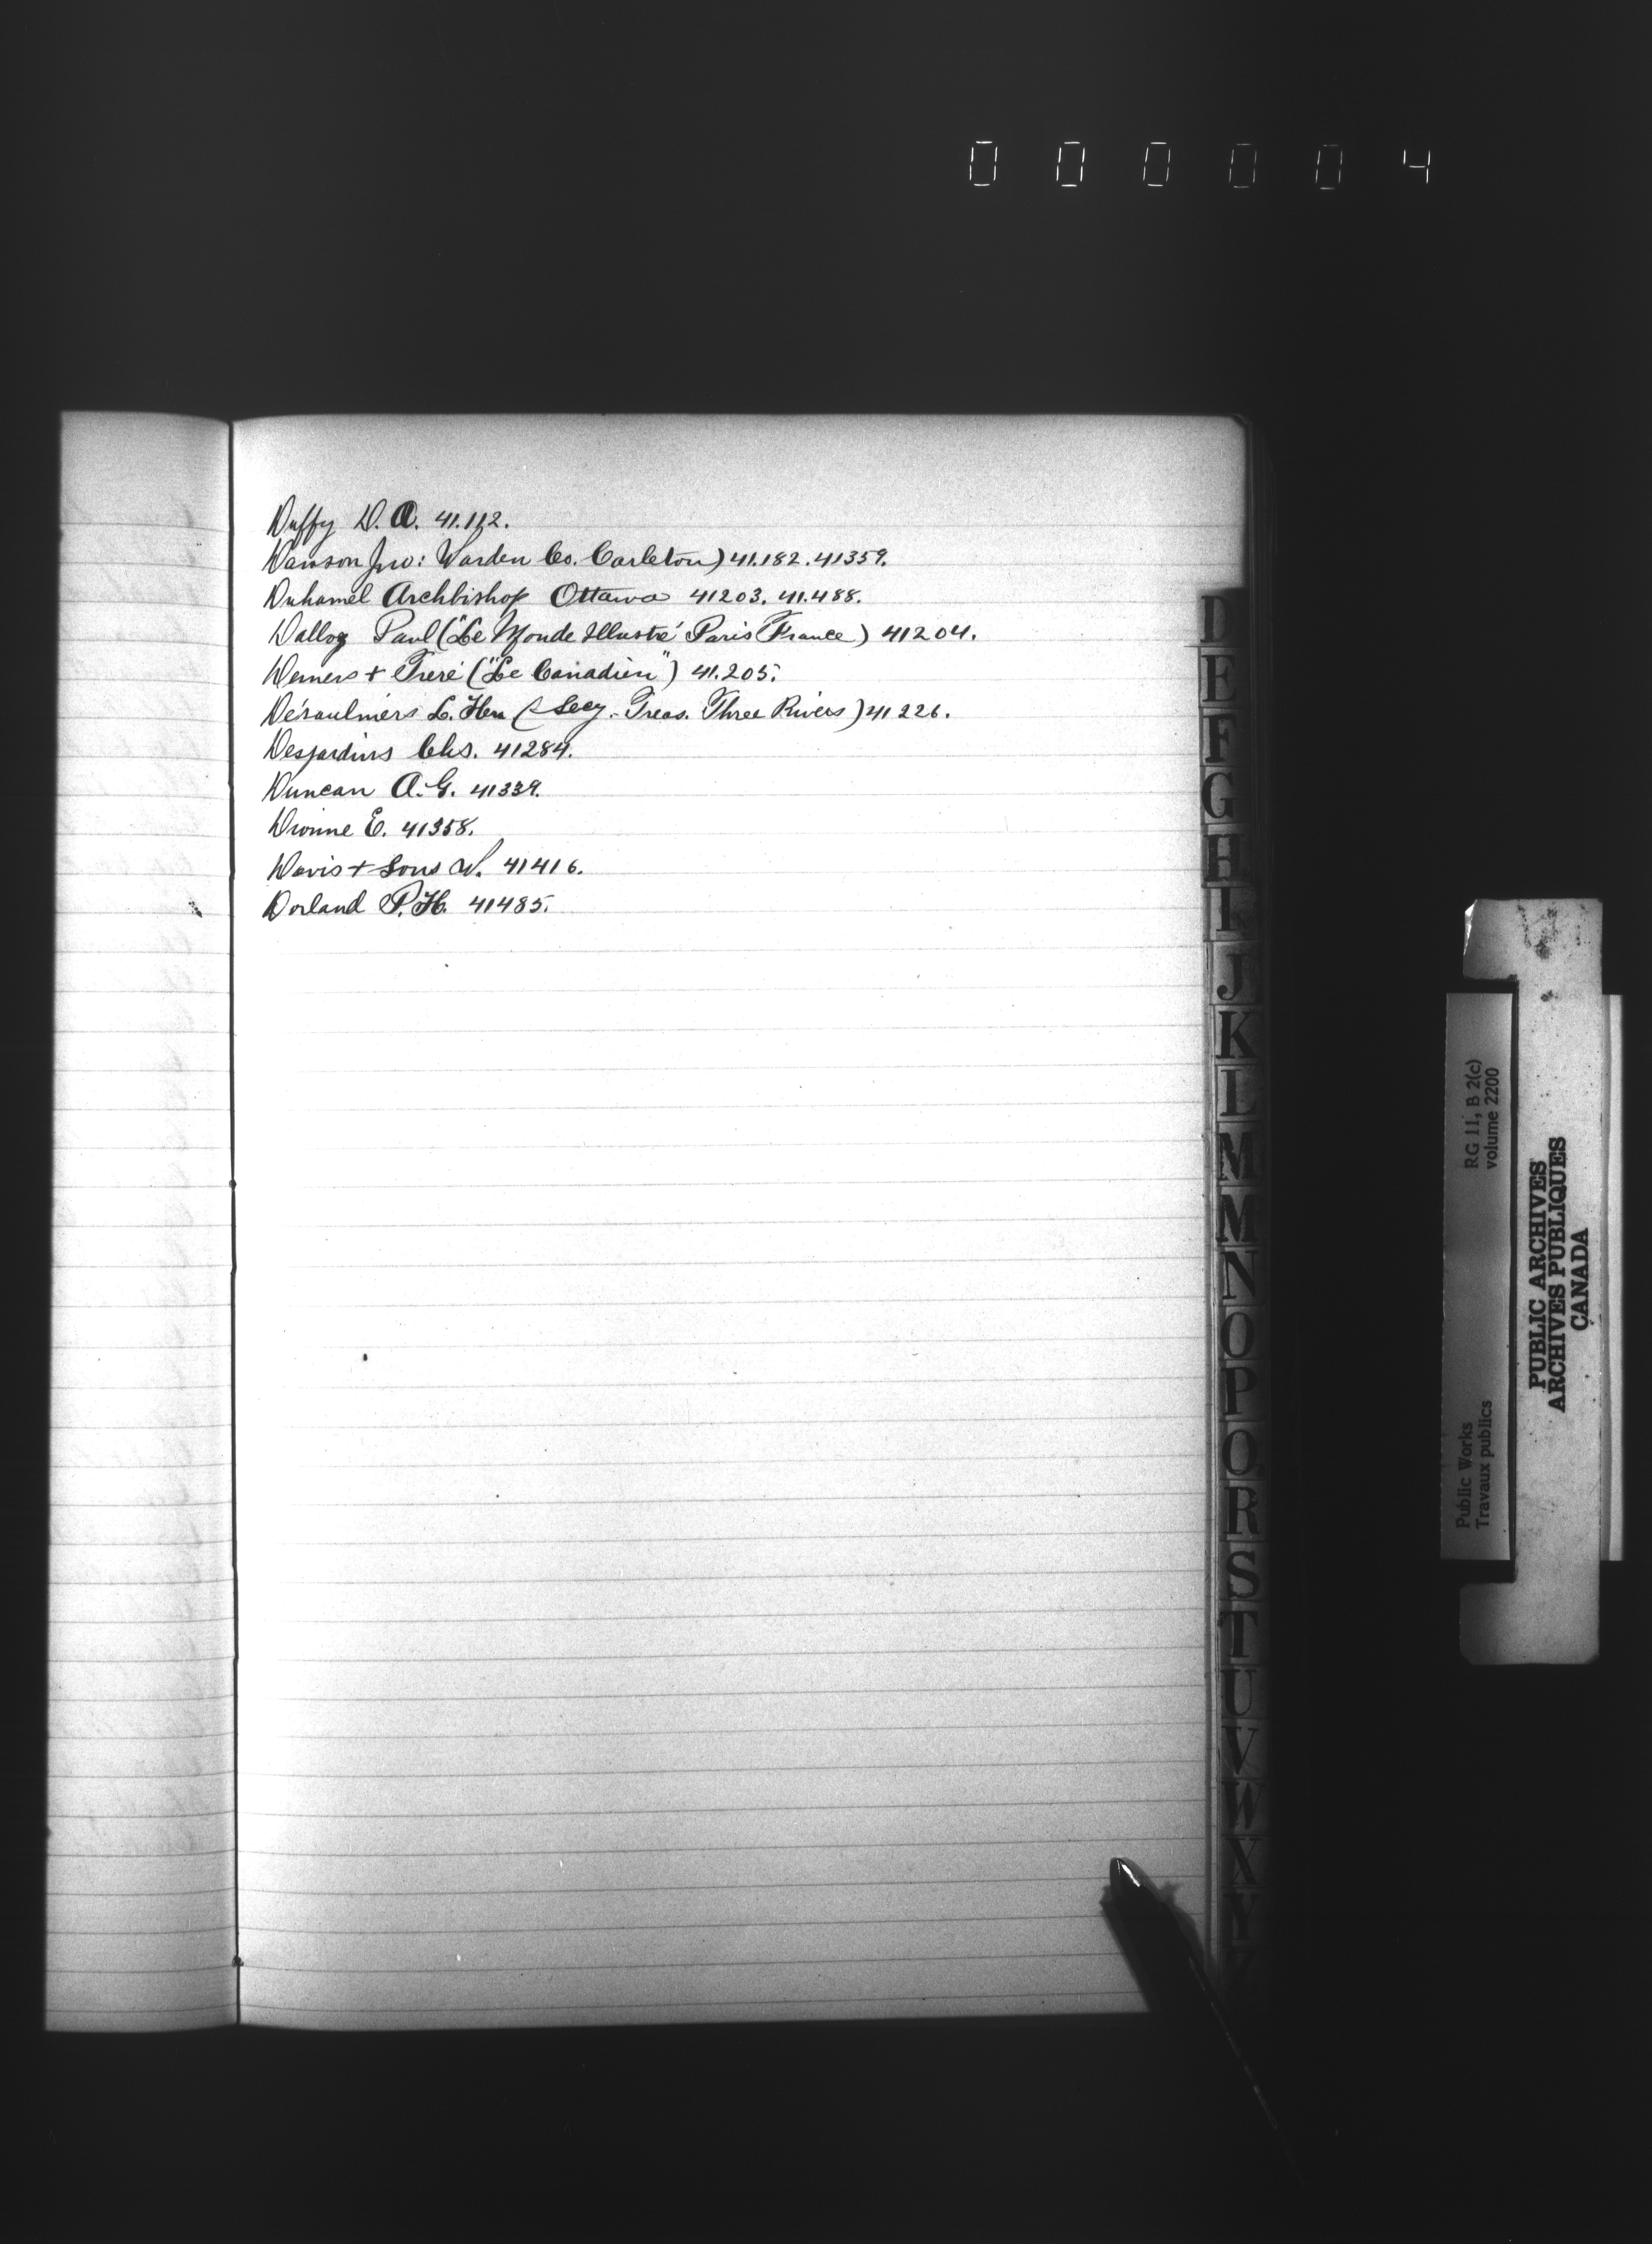 000004
Duffy D. A. 41.112.
Dawson Jno: Warden Co. Carleton) 41.182. 41359.
Duhamel Archbishop Ottawa 41203. 41.488.
Dalloz Paul ("Le Monde Illustré Paris France) 41204.
Demers + Freré ("Le Canadien") 41.205.
Désaulniers L. Hen (Secy. Treas. Three Rivers) 41226.
Desjardins Chs. 41284.
Duncan A. G. 41339.
Dionne E. 41358.
Davis + Sons W. 41416.
Dorland P. H. 41485.
D
E
F
G
H
I
J
K
L
M
M
N
O
P
Q
R
S
T
U
V
W
X
Y
Public Works
Travaux publics
RG 11, B 2(c)
volume 2200
PUBLIC ARCHIVES
ARCHIVES PUBLIQUES
CANADA